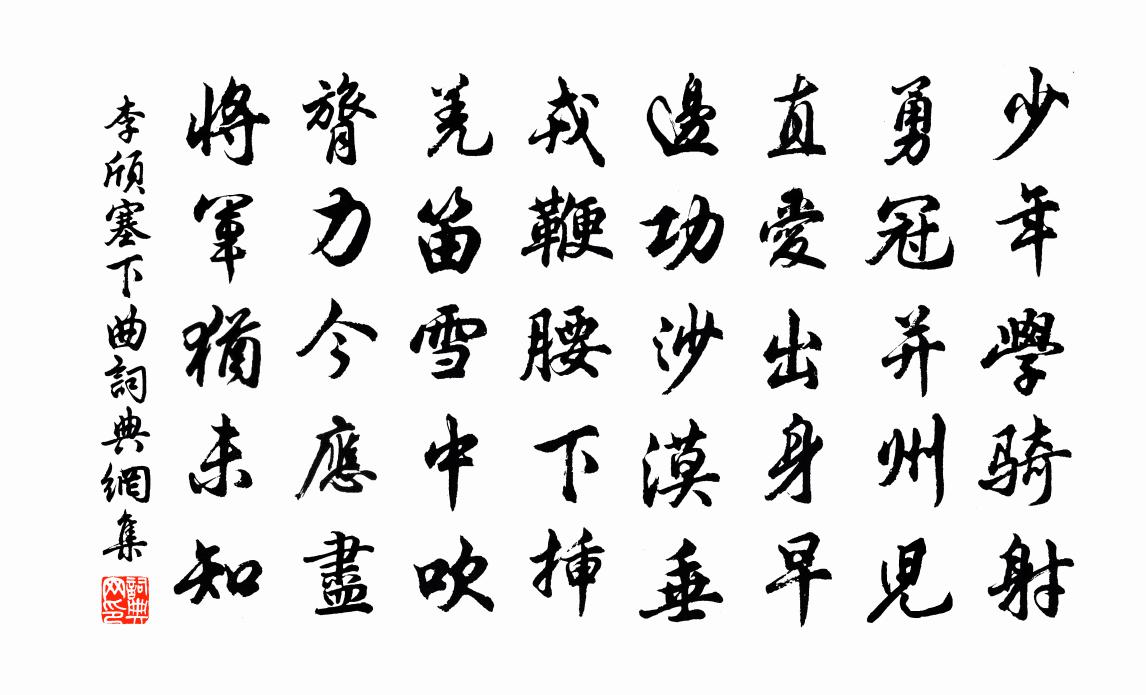 少年學騎射
勇冠并州兒
直愛出身早
邊功沙漠垂
戎鞭腰下插
羌笛雪中吹
膂力今應盡
將軍猶未知
李頎塞下曲詞典網集
詞典
网印